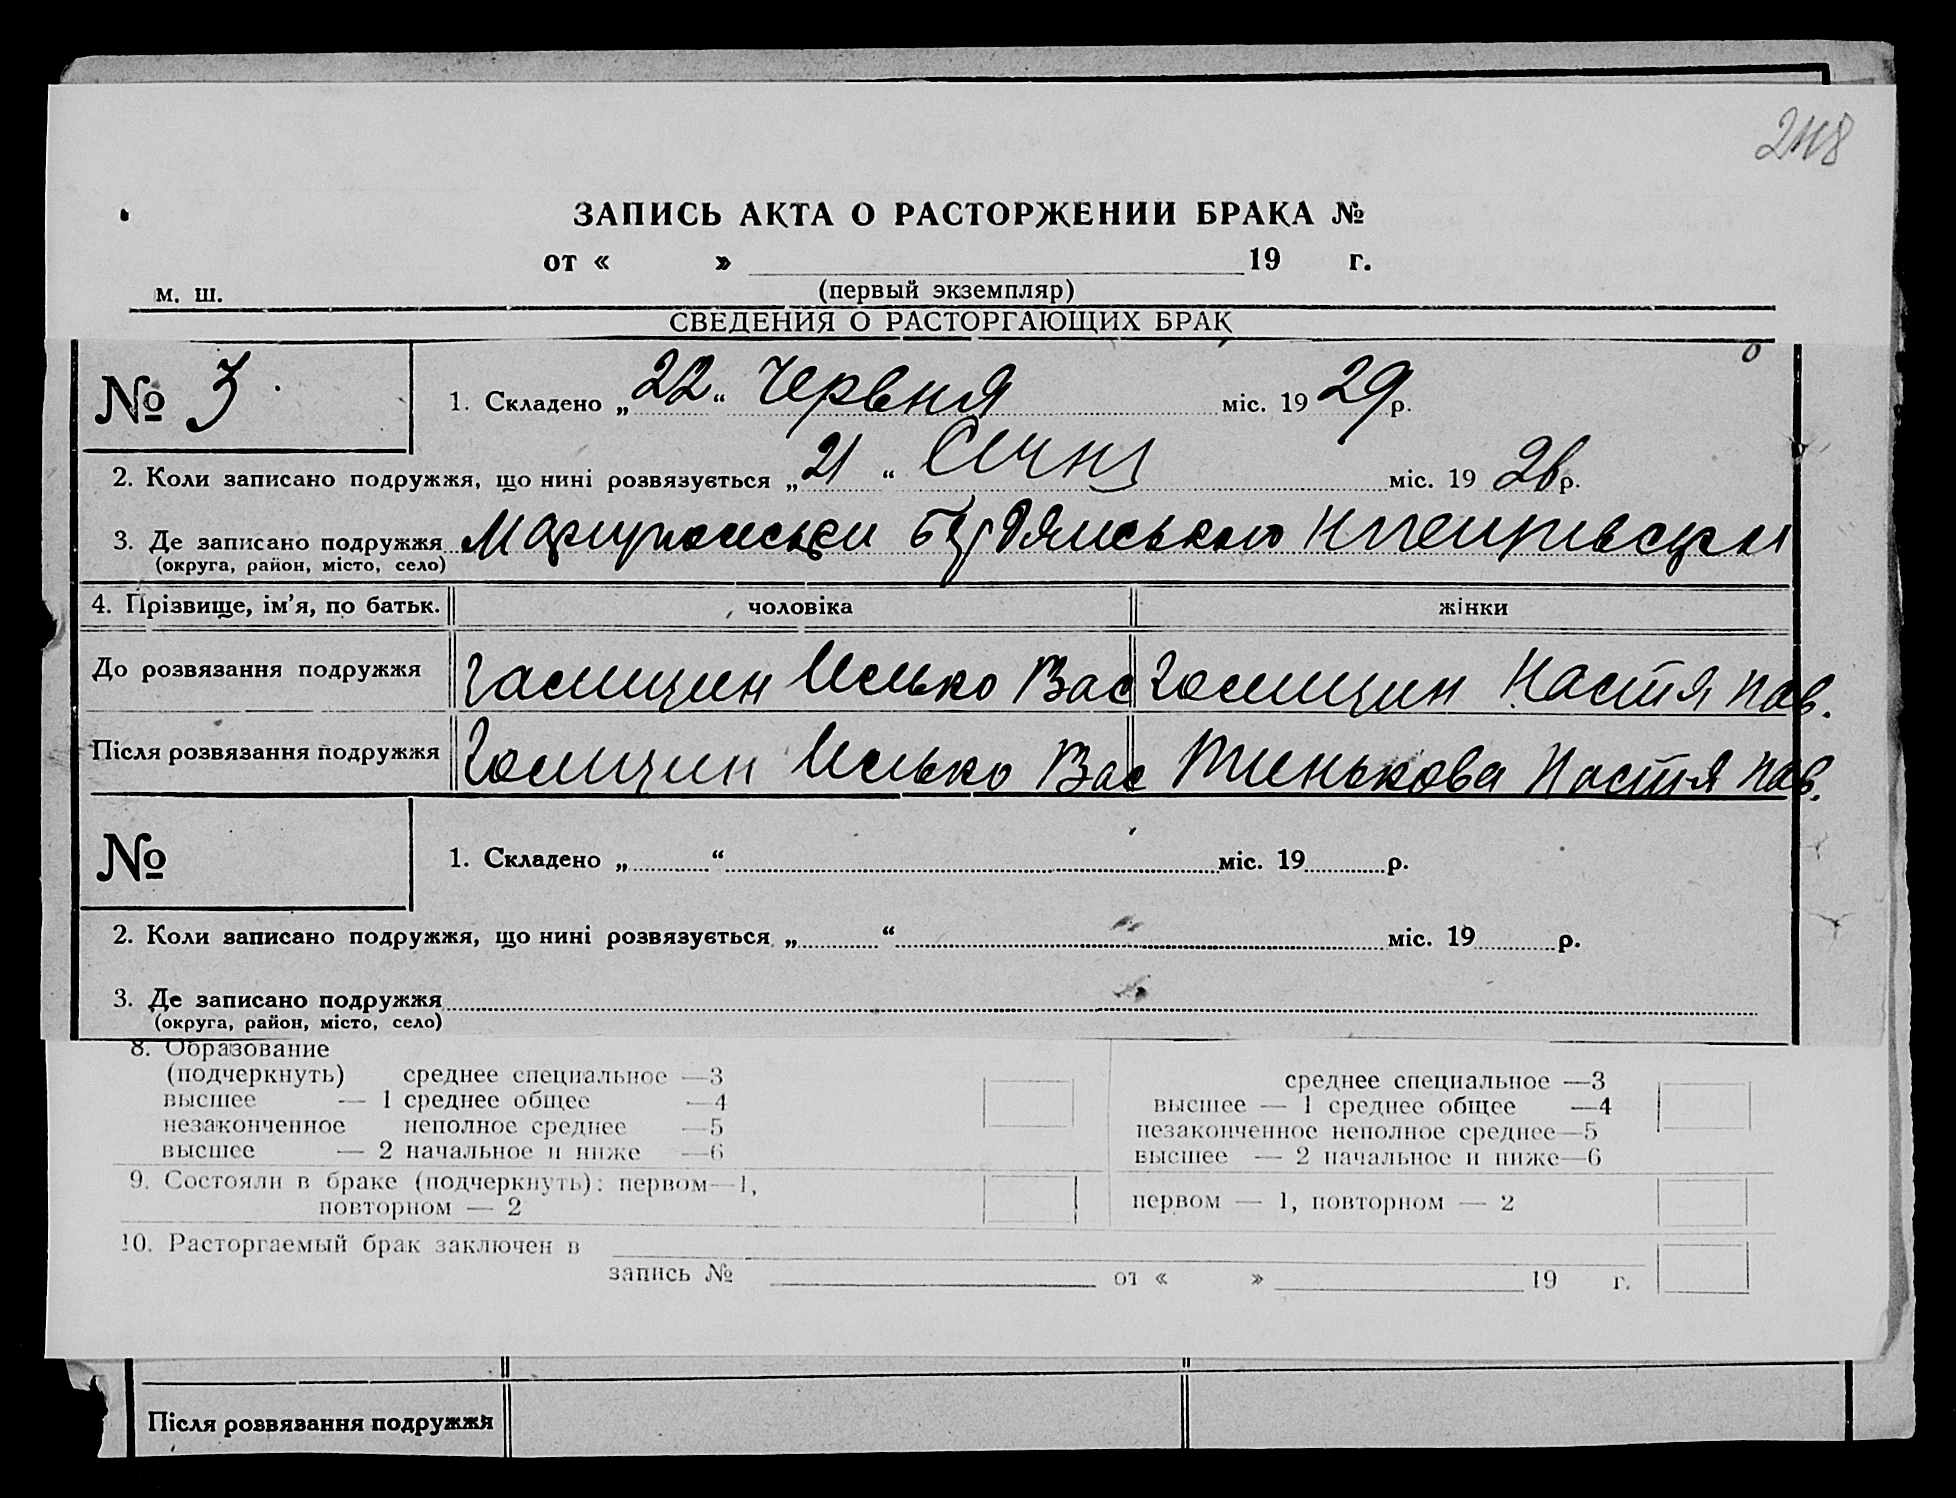 ЗАПИСЬ АКТА О РАСТОРЖЕНИИ БРАКА №
от « » 19 г.
м. ш. (первый экземпляр)
СВЕДЕНИЯ О РАСТОРГАЮЩИХ БРАК
№ 3. 1. Складено „22“ Червня міс. 1929р.
2. Коли записано подружжя, що нині розвязується „21“ Січня міс. 19 р.
3. Де записано подружжя
(округа, район, місто, село)
4. Прізвище, ім’я, по батьк. чоловіка жінки
До розвязання подружжя Галицин Илько Вас Галицин Настя Пав.
Після розвязання подружжя Галицин Илько Вас Тинькова Настя Пав.
№ 1. Складено „ “ міс. 19 р.
2. Коли записано подружжя, що нині розвязується „ “ міс. 19 р.
3. Де записано подружжя
(округа, район, місто, село)
8. Образование
(подчеркнуть) среднее специальное —3 среднее специальное —3
высшее — 1 среднее общее —4 высшее — 1 среднее общее —4
незаконченное неполное среднее —5 незаконченное неполное среднее—5
высшее — 2 начальное и ниже —6 высшее — 2 начальное и ниже—6
9. Состояли в браке (подчеркнуть): первом—1, первом — 1, повторном — 2
повторном — 2
10. Расторгаемый брак заключен в
запись № от « » 19 г.
Після розвязання подружжя